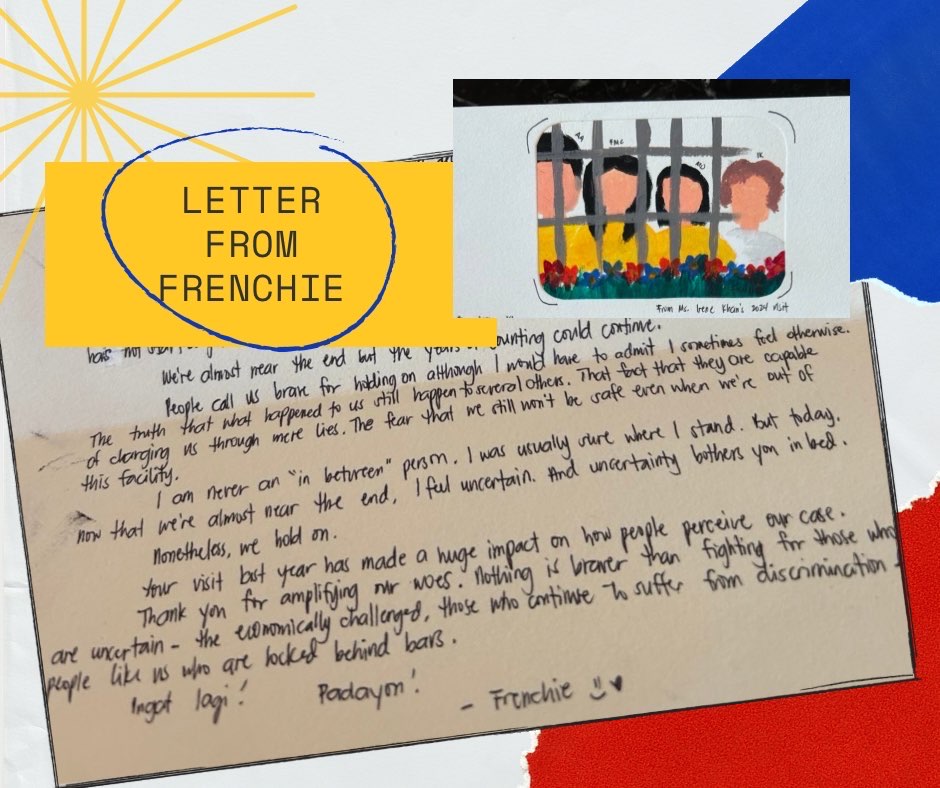 LETTER
FROM
FRENCHIE
FMC
MD
IK
From Ms. Irene Khan's 2024 Visit
has not
We're almost near the end but the years of counting could continue.
People call us brave for holding on although I would have to admit I sometimes feel otherwise.
The truth that what happened to us still happen to several others. That fact that they are capable
of charging us through mere lies. The fear that we still won't be safe even when we're out of
this facility.
I am never an "in between" person. I was usually sure where I stand. But today,
now that we're almost near the end, I feel uncertain. And uncertainty bothers you in bed.
Nonetheless, we hold on.
Your visit last year has made a huge impact on how people perceive our case.
Thank you for amplifying our woes. Nothing is braver than fighting for those who
are uncertain - the economically challenged, those who continue to suffer from discrimination -
people like us who are locked behind bars.
Ingat lagi! Padayon!
- Frenchie